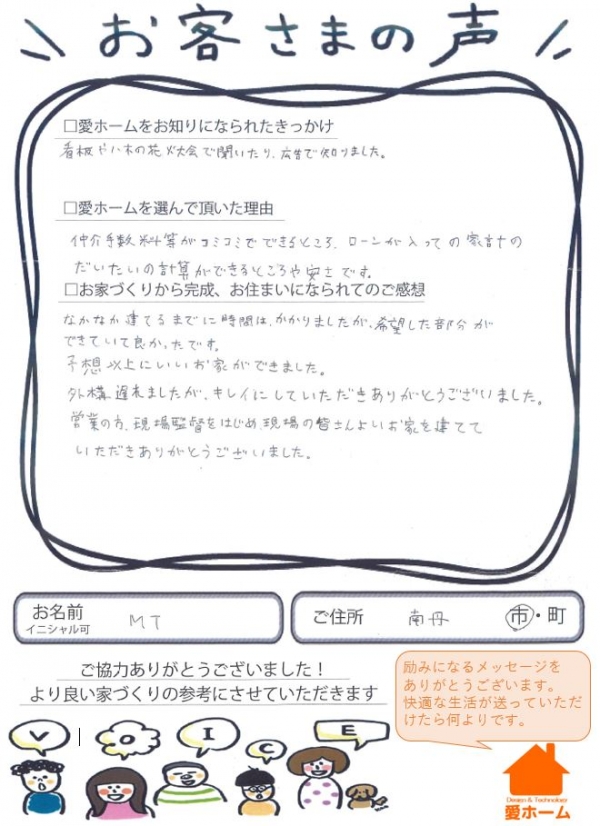 お客さまの声
□愛ホームをお知りになられたきっかけ
看板や八木の花火大会で聞いたり、広告で知りました。
□愛ホームを選んで頂いた理由
仲介手数料等がコミコミでできるところ、ローンが入っての家計の
だいたいの計算ができるところや安さです。
□お家づくりから完成、お住まいになられてのご感想
なかなか建てるまでに時間は、かかりましたが、希望した部分が
できていて良かったです。
予想以上にいいお家ができました。
外構遅れましたが、キレイにしていただきありがとうございました。
営業の方、現場監督をはじめ、現場の皆さんよいお家を建てて
いただきありがとうございました。
お名前
イニシャル可
MT
ご住所 南丹 市・町
ご協力ありがとうございました！
より良い家づくりの参考にさせていただきます
励みになるメッセージを
ありがとうございます。
快適な生活が送っていただ
けたら何よりです。
VOICE
Design & Technology
愛ホーム